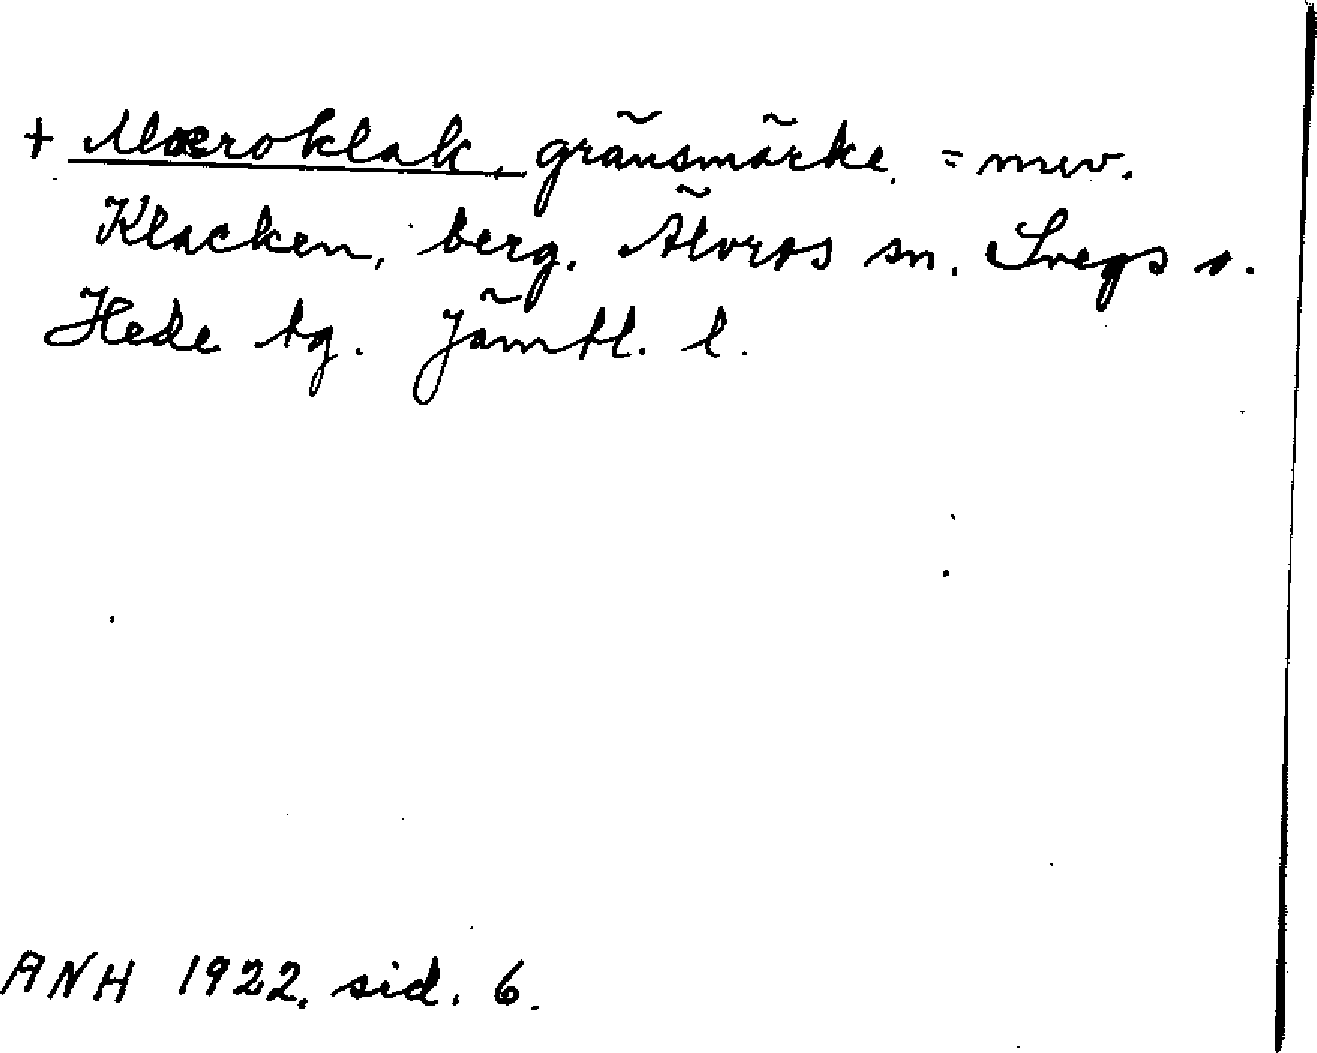 + Mæroklak, gränsmärke. = nuv.
Klacken, berg. Älvros sn. Svegs o.
Hede tg. Jämtl. l.
ANH 1922. sid. 6.